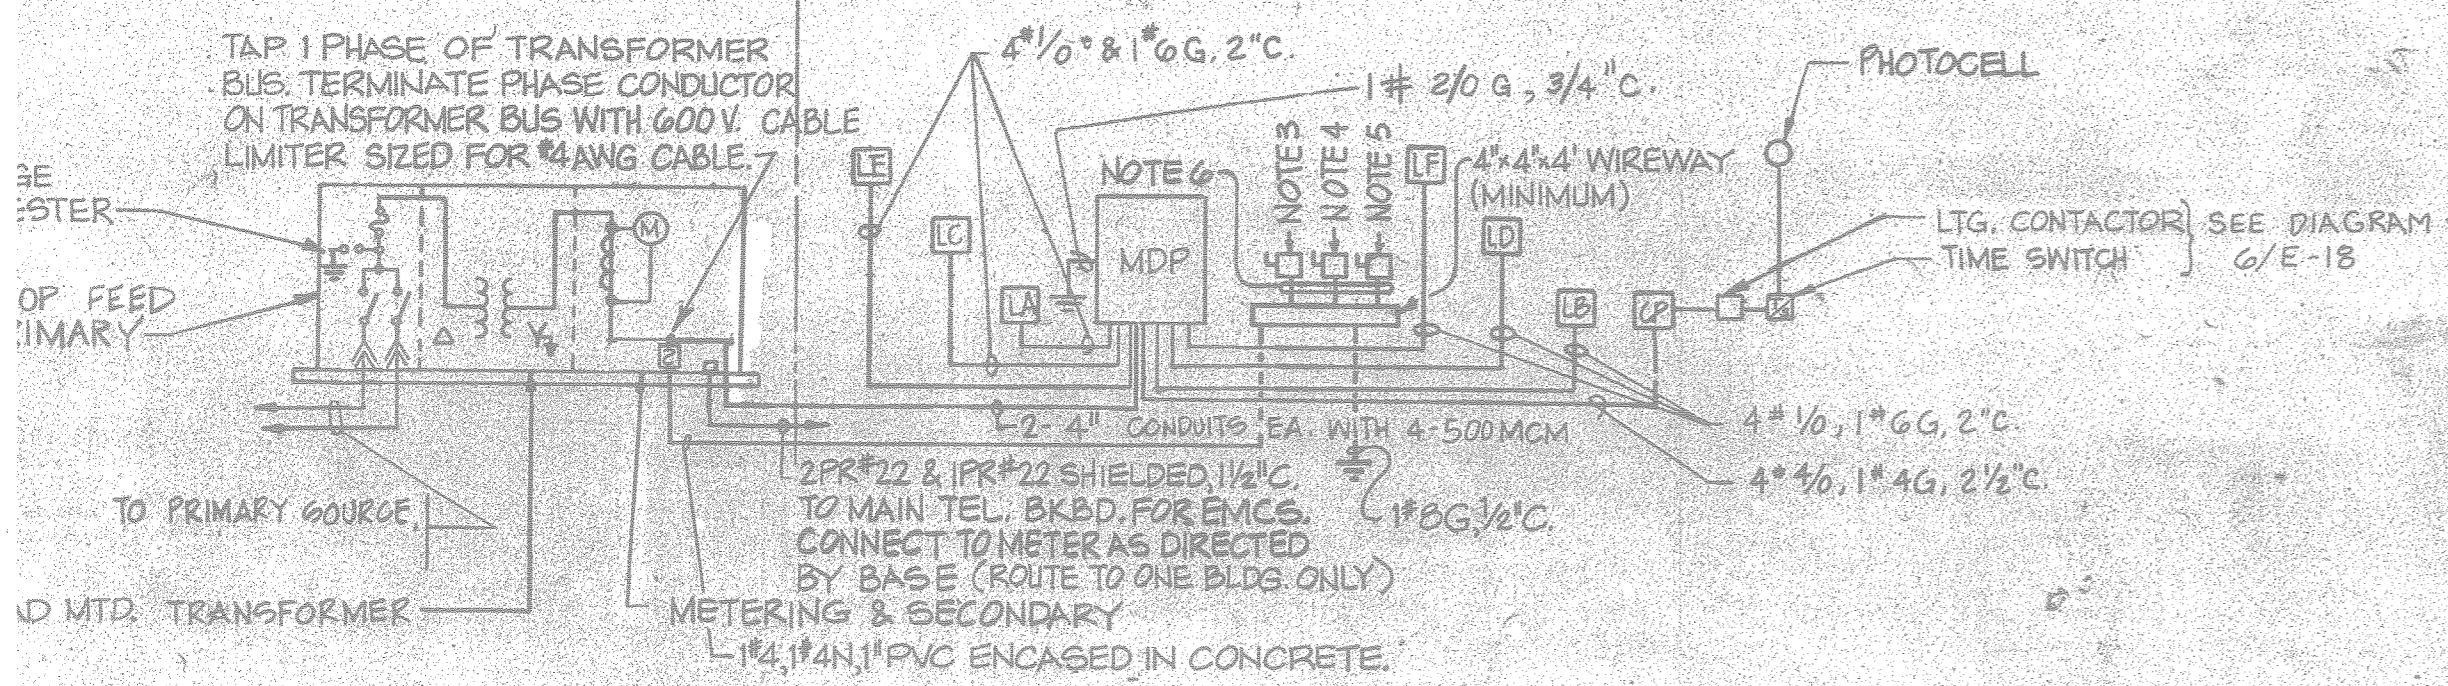 TAP 1 PHASE OF TRANSFORMER
BUS. TERMINATE PHASE CONDUCTOR
ON TRANSFORMER BUS WITH 600 V. CABLE
LIMITER SIZED FOR #4 AWG CABLE.
GE
ESTER
OP FEED
RIMARY
M
TO PRIMARY SOURCE.
AD MTD. TRANSFORMER
4#1/0 & 1#6G, 2"C.
1# 2/0 G, 3/4"C.
PHOTOCELL
NOTE 6
NOTE 3
NOTE 4
NOTE 5
4"x4"x4' WIREWAY
(MINIMUM)
LTG. CONTACTOR} SEE DIAGRAM
TIME SWITCH} 6/E-18
LE
LC
LA
MDP
LF
LD
LB
CP
2-4" CONDUITS EA. WITH 4-500 MCM
4#1/0, 1#6G, 2"C.
4#4/0, 1#4G, 2½"C.
2PR#22 & 1PR#22 SHIELDED, 1½"C.
TO MAIN TEL. BKBD. FOR EMCS.
CONNECT TO METER AS DIRECTED
BY BASE (ROUTE TO ONE BLDG. ONLY)
1#8G, ½"C.
METERING & SECONDARY
1#4, 1#4N, 1"PVC ENCASED IN CONCRETE.